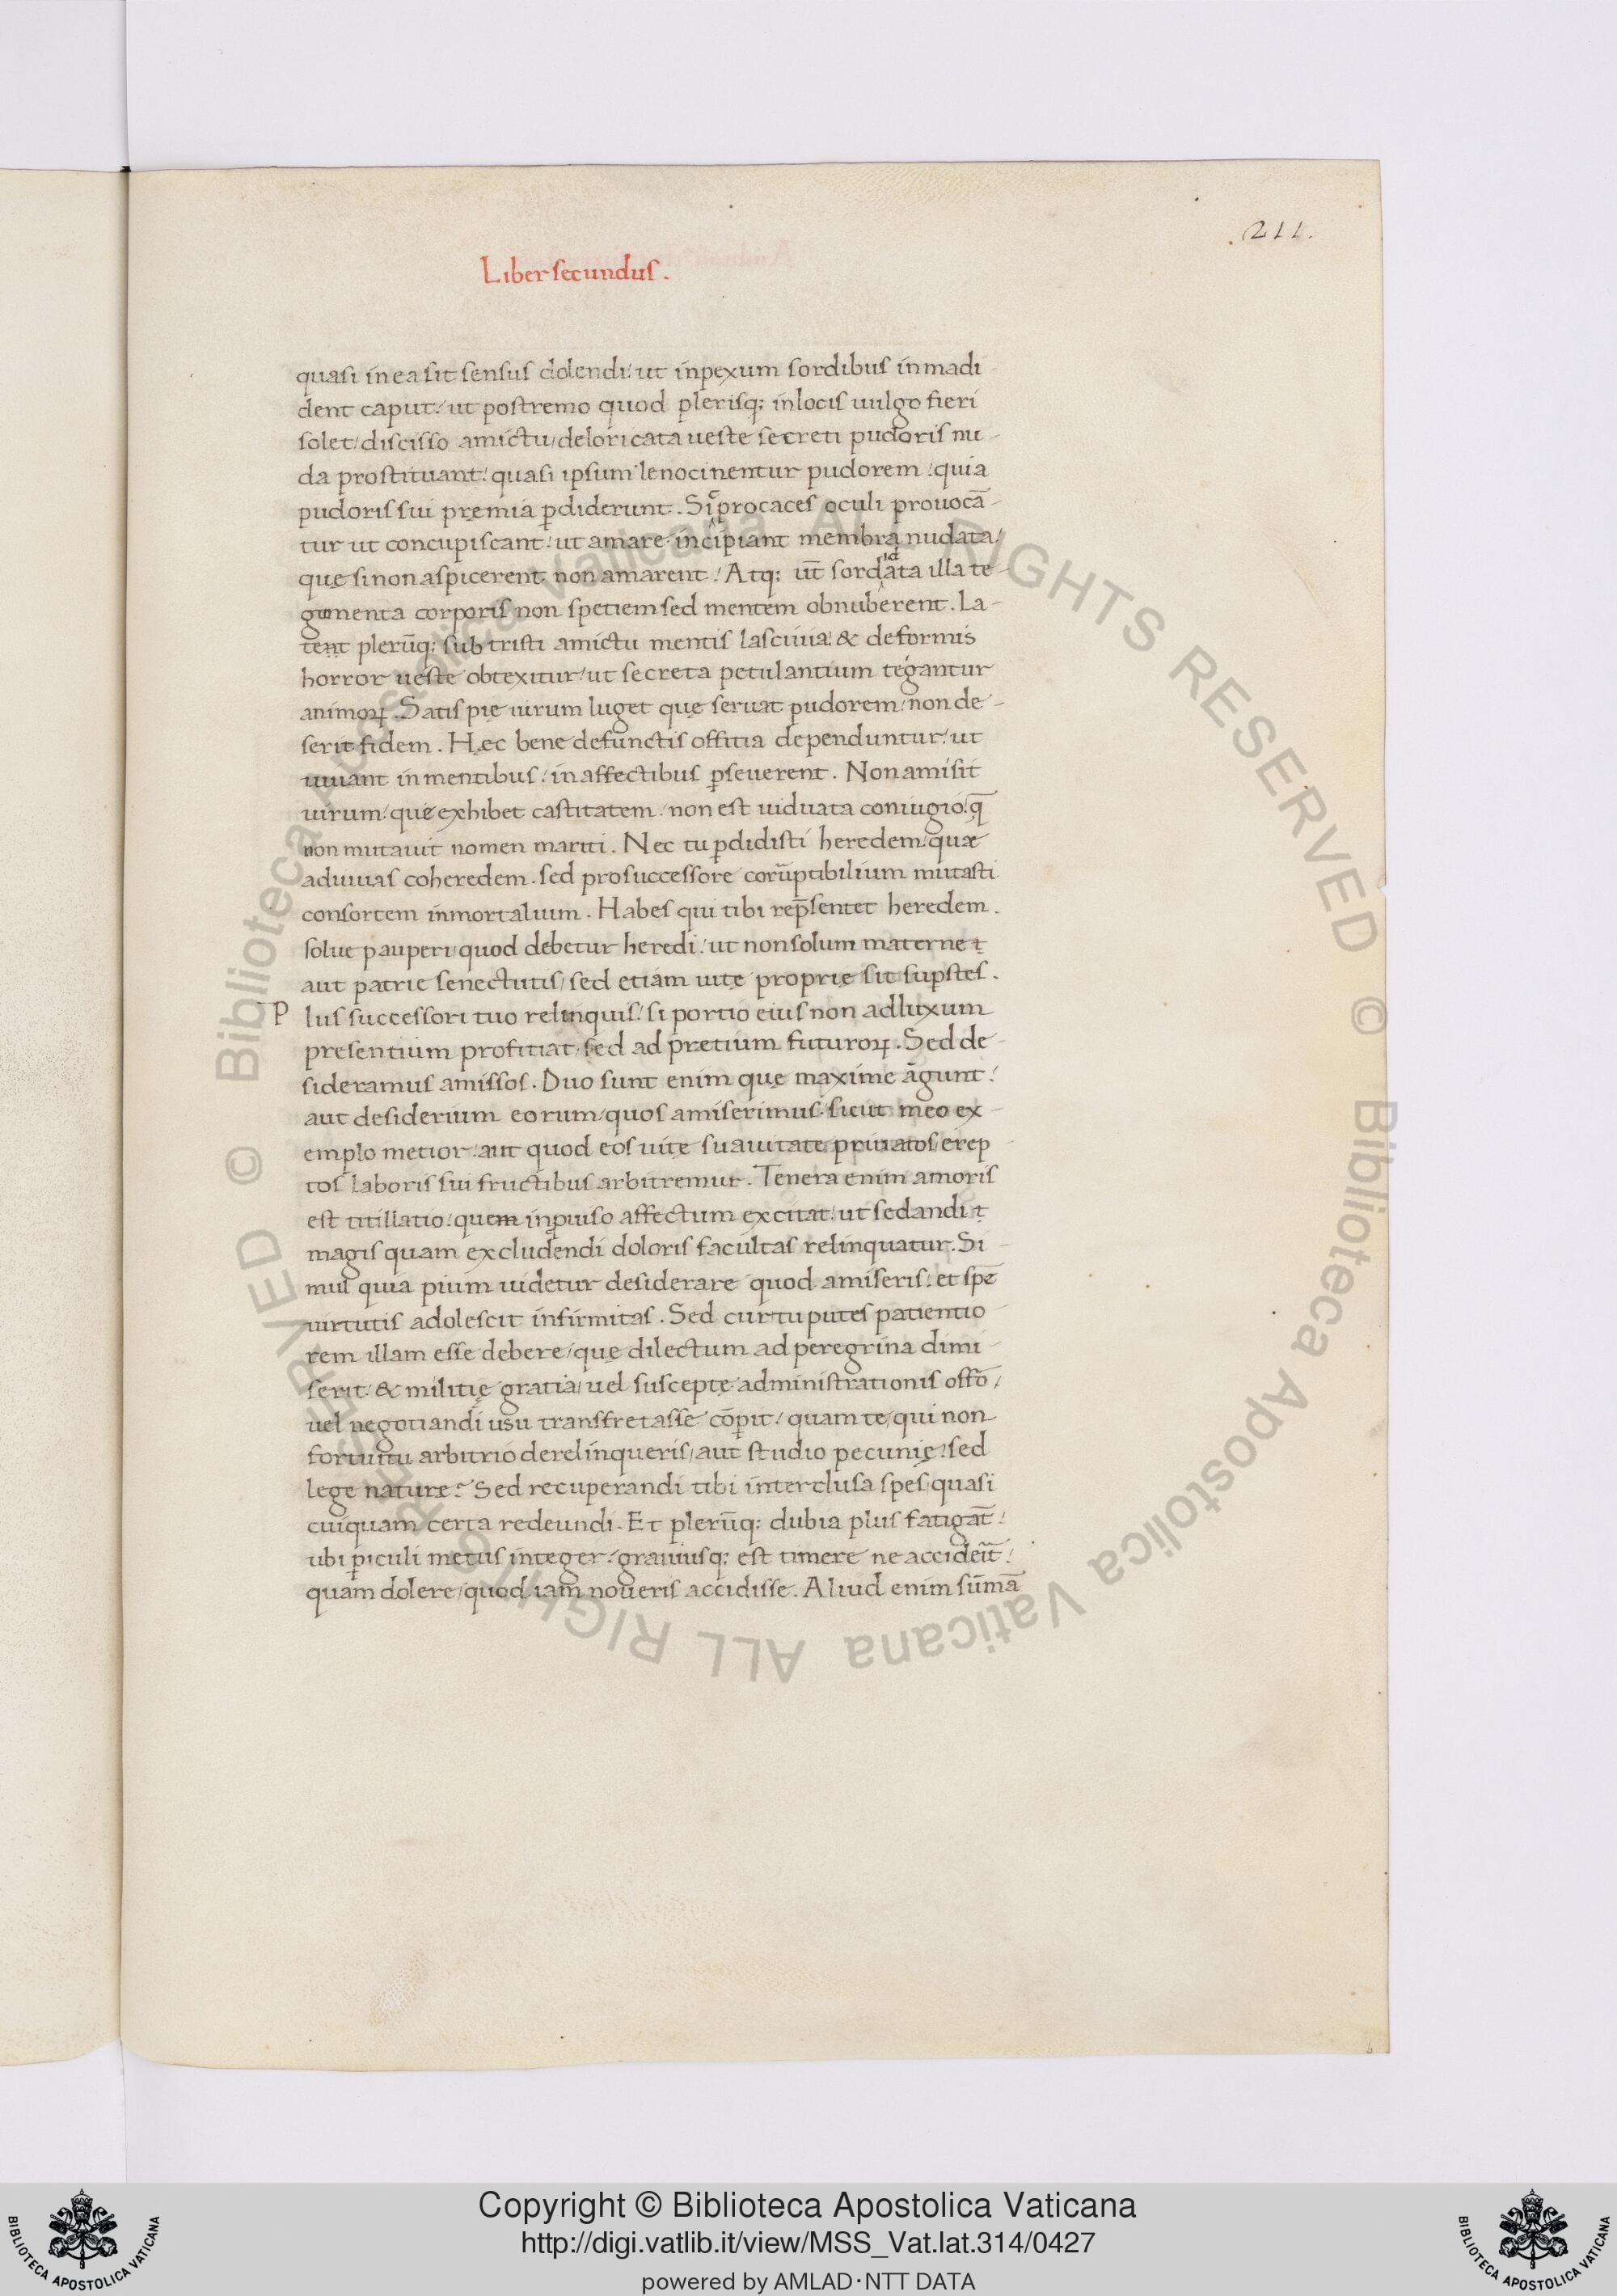 .211.
Liber secundus.
quasi in ea sit sensus dolendi: ut inpexum sordibus inmadi-
dent caput: ut postremo quod plerisq; in locis uulgo fieri
solet/ discisso amictu/ deloricata ueste secreti pudoris nu-
da prostituant: quasi ipsum lenocinentur pudorem/ quia
pudoris sui premia ꝑdiderunt. Sic procaces oculi prouocā-
tur ut concupiscant: ut amare incipiant membra nudata/
quę si non aspicerent non amarent/ Atq; ut̄ sordida ta illa te-
gumenta corporis non spetiem sed mentem obnuberent. La-
tent plerūq; sub tristi amictu mentis lasciuia: & deformis
horror ueste obtexitur/ ut secreta petulantium tegantur
animoꝝ. Satis pie uirum luget quę seruat pudorem/ non de-
serit fidem. Hęc bene defunctis offitia dependuntur/ ut
uiuant in mentibus/ in affectibus ꝑseuerent. Non amisit
uirum/ quę exhibet castitatem/ non est uiduata coniugio: q̄
non mutauit nomen mariti. Nec tu ꝑdidisti heredem/ quæ
adiuuas coheredem. sed pro successore corūptibilium mutasti
consortem inmortalium. Habes qui tibi rep̄sentet heredem.
solue pauperi quod debetur heredi/ ut non solum materne
aut patrie senectutis/ sed etiam uitę proprię sit sup̱stes.
P lus successori tuo relinquis/ si portio eius non ad luxum
presentium profitiat/ sed ad pretium futuroꝝ. Sed de-
sideramus amissos. Duo sunt enim quę maxime āgunt/
aut desiderium eorum/ quos amiserimus/ sicut meo ex-
emplo metior/ aut quod eos uitę suauitate priuatos erep-
tos laboris sui fructibus arbitremur. Tenera enim amoris
est titillatio/ quem inprouiso affectum excitat/ ut sedandi
magis quam excludendi doloris facultas relinquatur. Si-
mul quia pium uidetur desiderare quod amiseris/ et spē
uirtutis adolescit infirmitas. Sed cur tu putes patientio-
rem illam esse debere/ quę dilectum ad peregrina dimi-
serit/ & militię gratia/ uel susceptę administrationis offō/
uel negotiandi usu transfretasse cōꝑit/ quam te/ qui non
fortuitu arbitrio derelinqueris/ aut studio pecunię/ sed
lege naturę? Sed recuperandi tibi interclusa spes/ quasi
cuiquam certa redeundi. Et plerūq; dubia plus fatigāt/
ubi ꝑiculi metus integer/ grauiusq; est timere ne accideīt/
quam dolere/ quod iam noueris accidisse. Aliud enim sūmā
© Biblioteca Apostolica Vaticana ALL RIGHTS RESERVED © Biblioteca Apostolica Vaticana ALL RIGHTS RESERVED
Copyright © Biblioteca Apostolica Vaticana
http://digi.vatlib.it/view/MSS_Vat.lat.314/0427
powered by AMLAD·NTT DATA
BIBLIOTECA APOSTOLICA VATICANA
BIBLIOTECA APOSTOLICA VATICANA